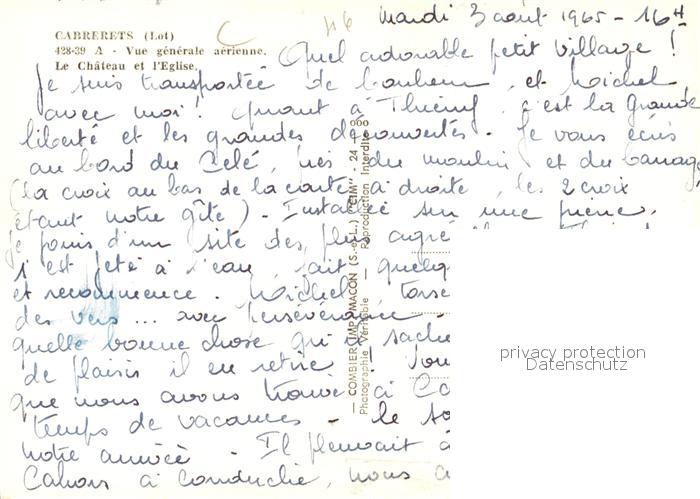 46
Mardi 3 août 1965 - 16H
CABRERETS (Lot)
428-39 A - Vue générale aérienne.
Le Château et l'Eglise.
Quel adorable petit village !
Je suis transportée de bonheur, et Michel
avec moi ! Quant à Thierry, c'est la grande
liberté et les grandes découvertes. Je vous écris
au bord du Celé, près du moulin et du barrage
(la croix au bas de la carte à droite, les 2 croix
étant notre gîte). Installée sur une pierre,
je jouis d'un site des plus agré
s'est jeté à l'eau, fait quelq
et recommence. Michel
des vers... avec persévérance.
quelle bonne chose qu'il sache
de plaisir il en retire
que nous avons trouvé à Ca
temps de vacances - le so
notre arrivée. Il pleuvait à
Cahors à conduché, nous a
— COMBIER IMP. MACON (S.-et-L.) "CIM" - 24
Photographie Véritable — Reproduction Interdite
privacy protection
Datenschutz